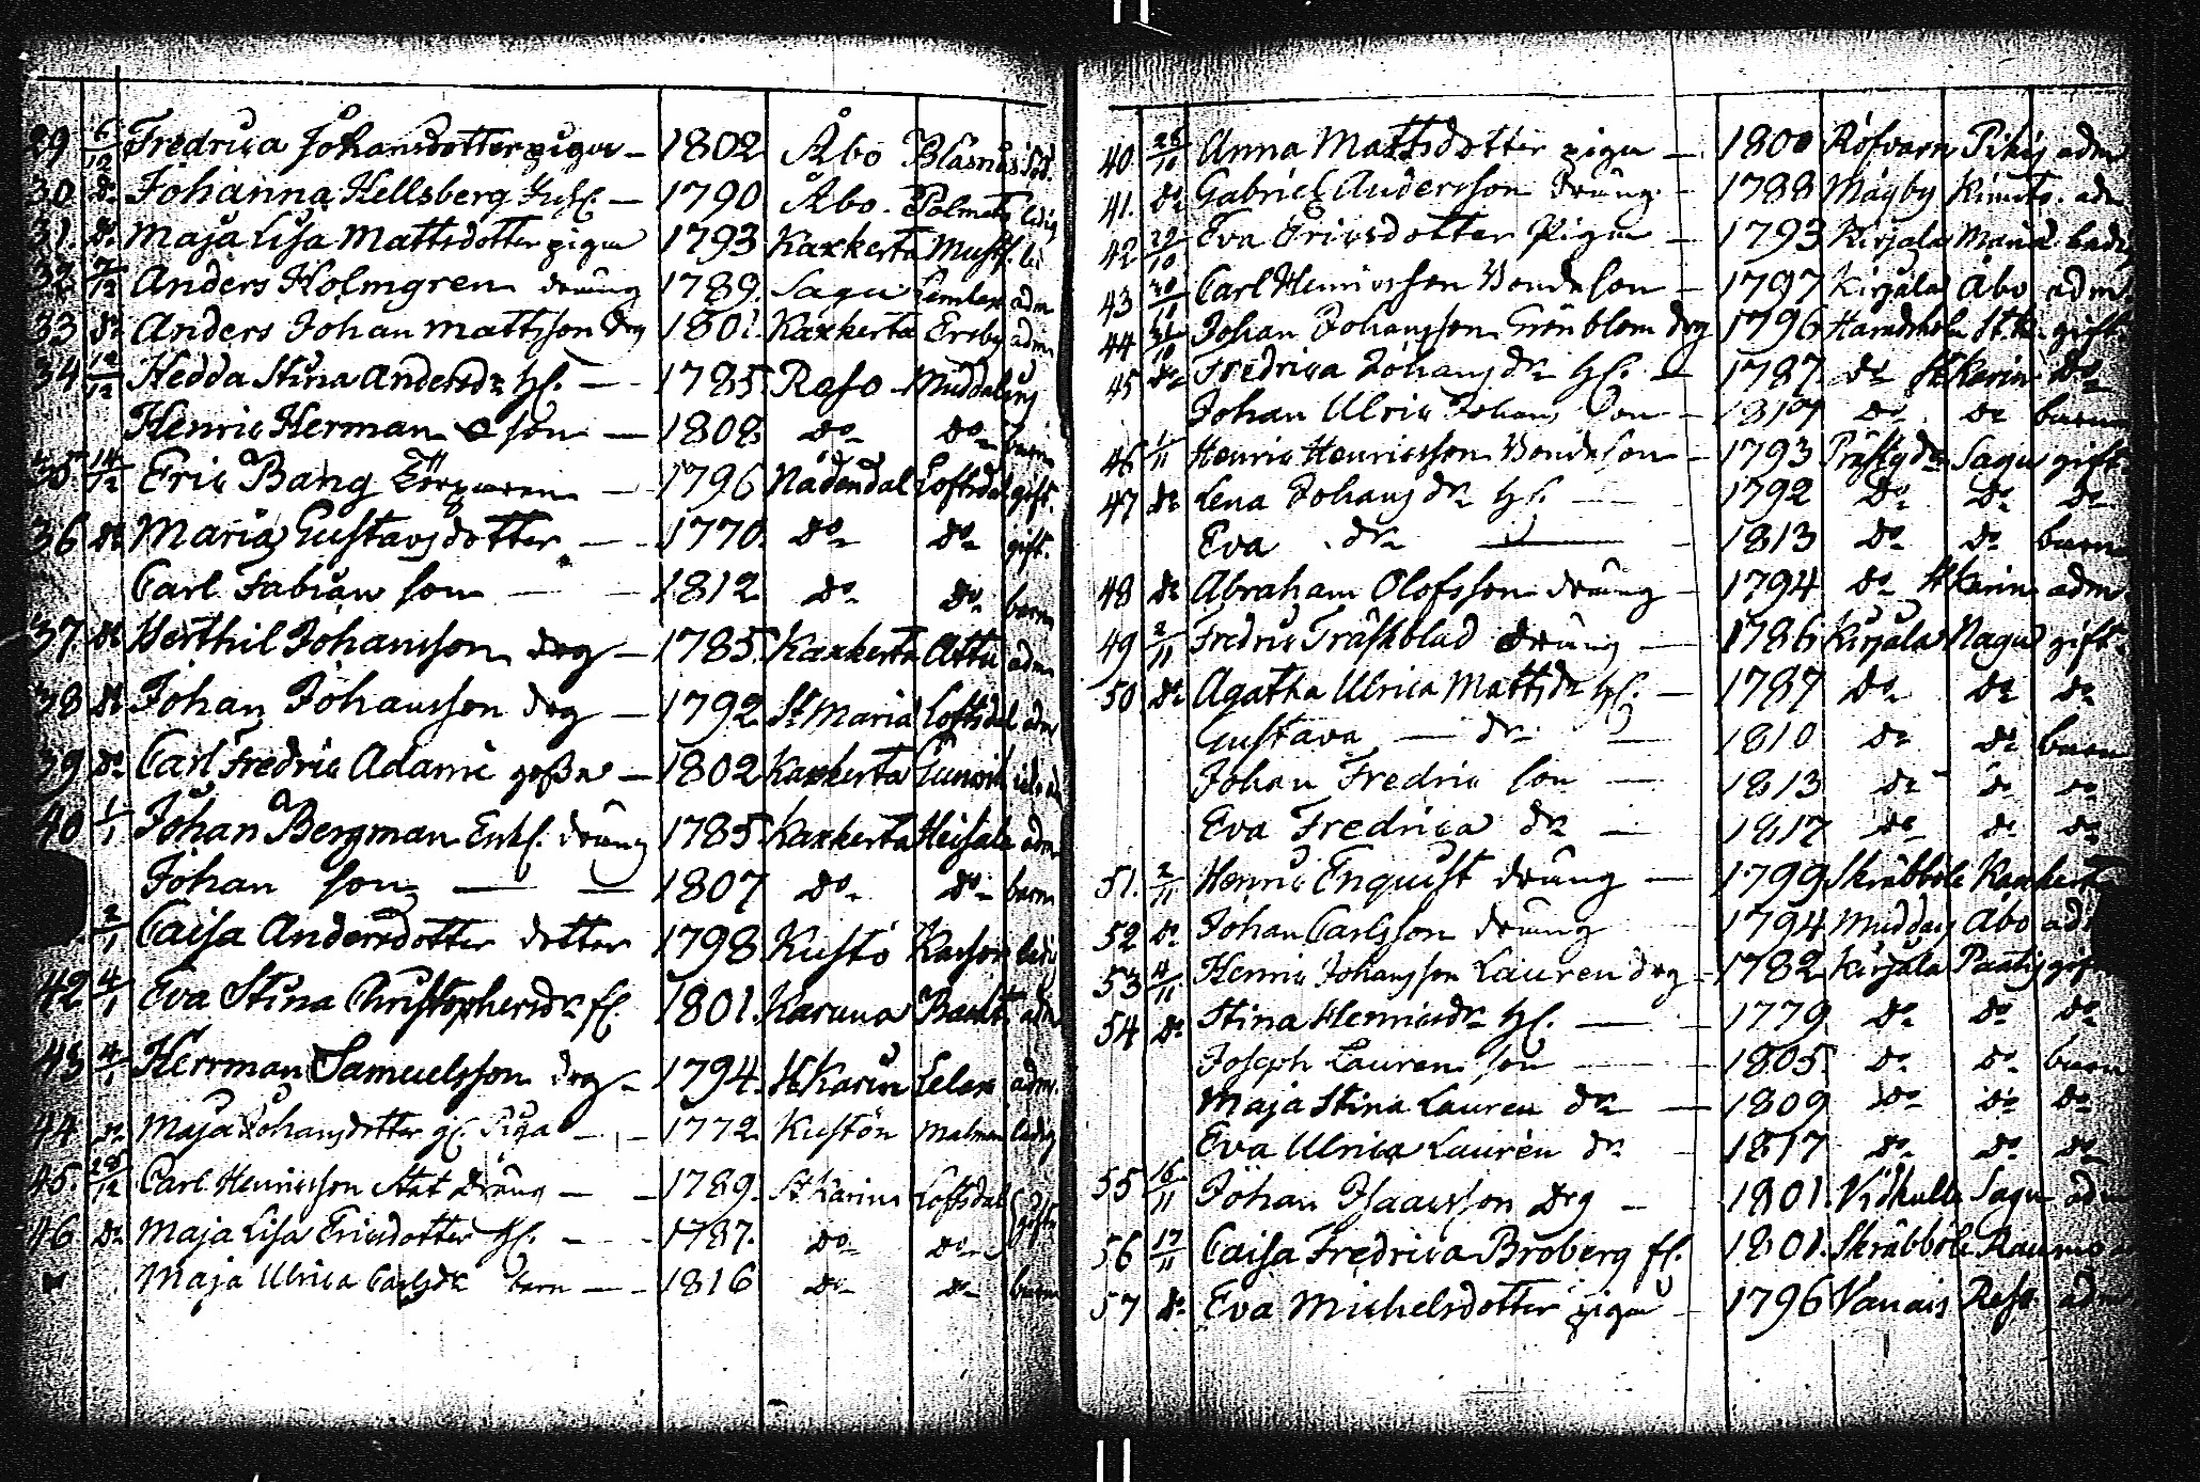 29 6/12 Fredrica Johansdotter piga — 1802 Åbo
30 do Johanna Hellsberg — 1790 Åbo ledig
31. do Maja Lisa Mattsdotter piga 1793 Kaxkerta
32 7/12 Anders Holmgren dräng 1789. Sagu Lemlax adm
33 do Anders Johan Mattsson drg 1801. Kaxkerta Ersby adm
34 12/12 Hedda Stina Andersdr h. — 1785 Reso
Henric Herman son — 1808 do do barn
35. 14/12 Eric Bang — 1796 Nådendal Loftsdal gift.
36 do Maria Gustavsdotter — 1770. do do gift.
Carl Fabian son — 1812 do do barn
37. do Berthil Johansson drg — 1785. Kaxkerta Attu adm
38 do Johan Johansson drg — 1792. St Maria Loftsdal adm
39 do Carl Fredric Adami gosse — 1802 Kaxkerta
40 1/1 Johan Bergman Enkl. dräng 1785 Kaxkerta Heisala adm
Johan son — — 1807 do do barn
2/1 Caisa Andersdotter dotter 1798 Kustö ledig
42 4/1 Eva Stina Christophersdr 1801. Karuna adm
43 4/1 Herrman Samuelsson drg — 1794. St Karin Lelax adm.
44 do Maja Johansdotter gl. Piga — 1772. Kustön Malmen ledig
45. 28/12 Carl Henricsson Stat dräng — 1789. St Karins Loftsdal gifte
46 do Maja Lisa Ericsdotter h. — 1787. do do
Maja Ulrica Carlsdr barn — 1816 do do barn
40 26/10 Anna Mattsdotter piga — 1800 Röfvarn Pikis adm
41. do Gabriel Andersson dräng — 1788 Mågby Kimito. adm
42 29/10 Eva Ericsdotter Piga — 1793 Kirjala
43 30/10 Carl Henricsson Bondeson — 1797 Kirjala Åbo adm.
44 31/10 Johan Johansson Grönblom drg 1796 St K. gift.
45 do Fredrica Johansdr h. — 1787. do St Karin do
Johan Ulric Johans Son — 1819 do do barn
46 1/11 Henric Henricsson Bondeson — 1793 Prästgdn Sagu gift.
47 do Lena Johansdr h. — 1792 do do do
Eva dr — 1813 do do barn
48 do Abraham Olofsson dräng — 1794 do St Karin adm.
49 2/11 Fredric Träskblad dräng — 1786 Kirjala Nagu gift.
50 do Agatha Ulrica Mattsdr h. — 1787 do do do
Gustava — dr — 1810 do do barn
Johan Fredric son — 1813 do do do
Eva Fredrica dr — 1817 do do do
51. 2/11 Henric Enquist dräng — 1799 Skräbböle Kaxkerta
52 do Johan Carlsson dräng 1794 Muddais Åbo ad
53 4/11 Henric Johansson Lauren drg — 1782 Kirjala gif
54 do Stina Henricsdr h. — 1779 do do do
Joseph Lauren son — 1805. do do barn
Maja Stina Lauren dr — 1809 do do do
Eva Ulrica Lauren dr — 1817 do do do
55 16/11 Johan Isaacsson drg — 1801. Vidkulla Sagu adm
56 17/11 Caisa Fredrica Broberg 1801. Skräbböle Raumo
57 do Eva Michelsdotter piga — 1796 Vanais Reso adm